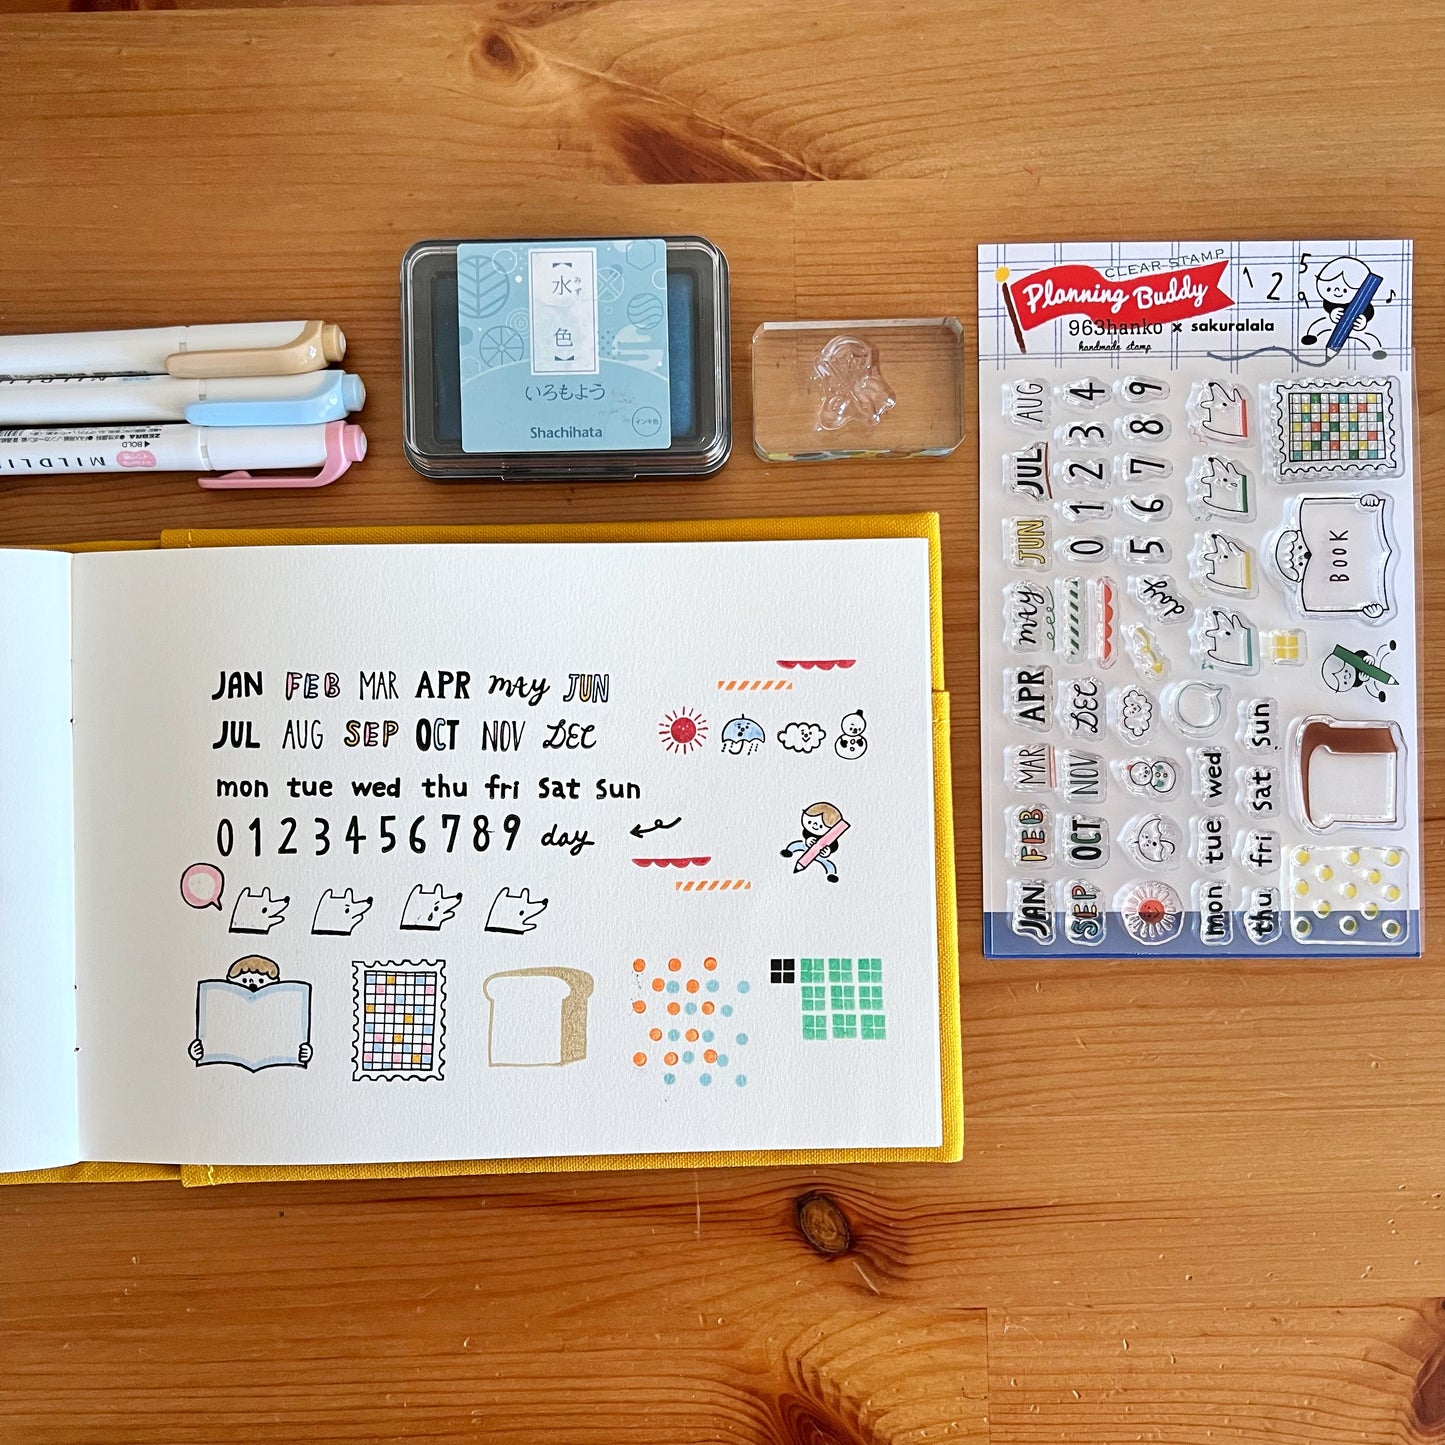 【水色】
みず
いろもよう
Shachihata
インキ色
ZEBRA
BOLD
MILDLI
CLEAR STAMP
Planning Buddy
1 2 5 9
963hanko x sakuralala
handmade stamp
AUG 4 9
JUL 3 8
JUN 2 7
MAY 1 6
APR 0 5
MAR DEC day
FEB NOV
JAN OCT
SEP
BOOK
mon tue wed
thu fri sat sun
JAN FEB MAR APR MAY JUN
JUL AUG SEP OCT NOV DEC
mon tue wed thu fri sat sun
0 1 2 3 4 5 6 7 8 9 day